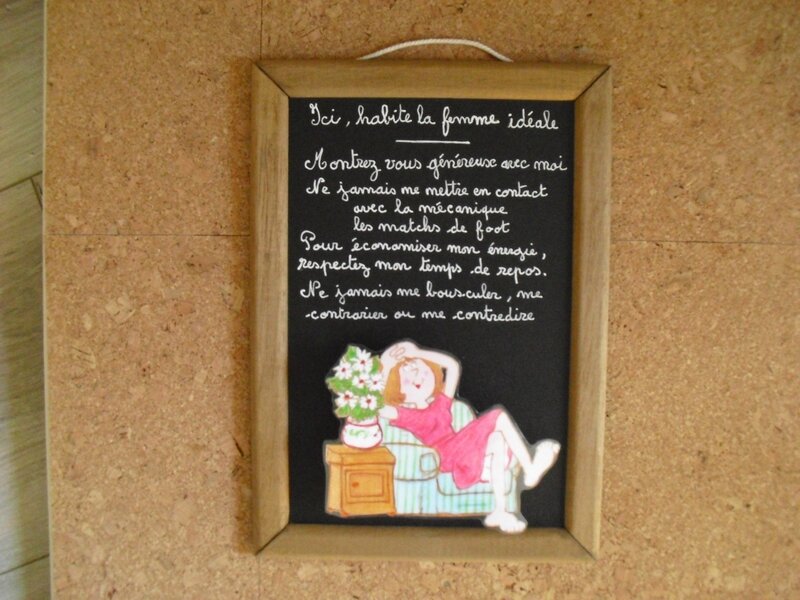 Ici, habite la femme idéale
Montrez vous généreux avec moi
Ne jamais me mettre en contact
avec la mécanique
les matchs de foot
Pour économiser mon énergie,
respectez mon temps de repos.
Ne jamais me bousculer, me
contrarier ou me contredire